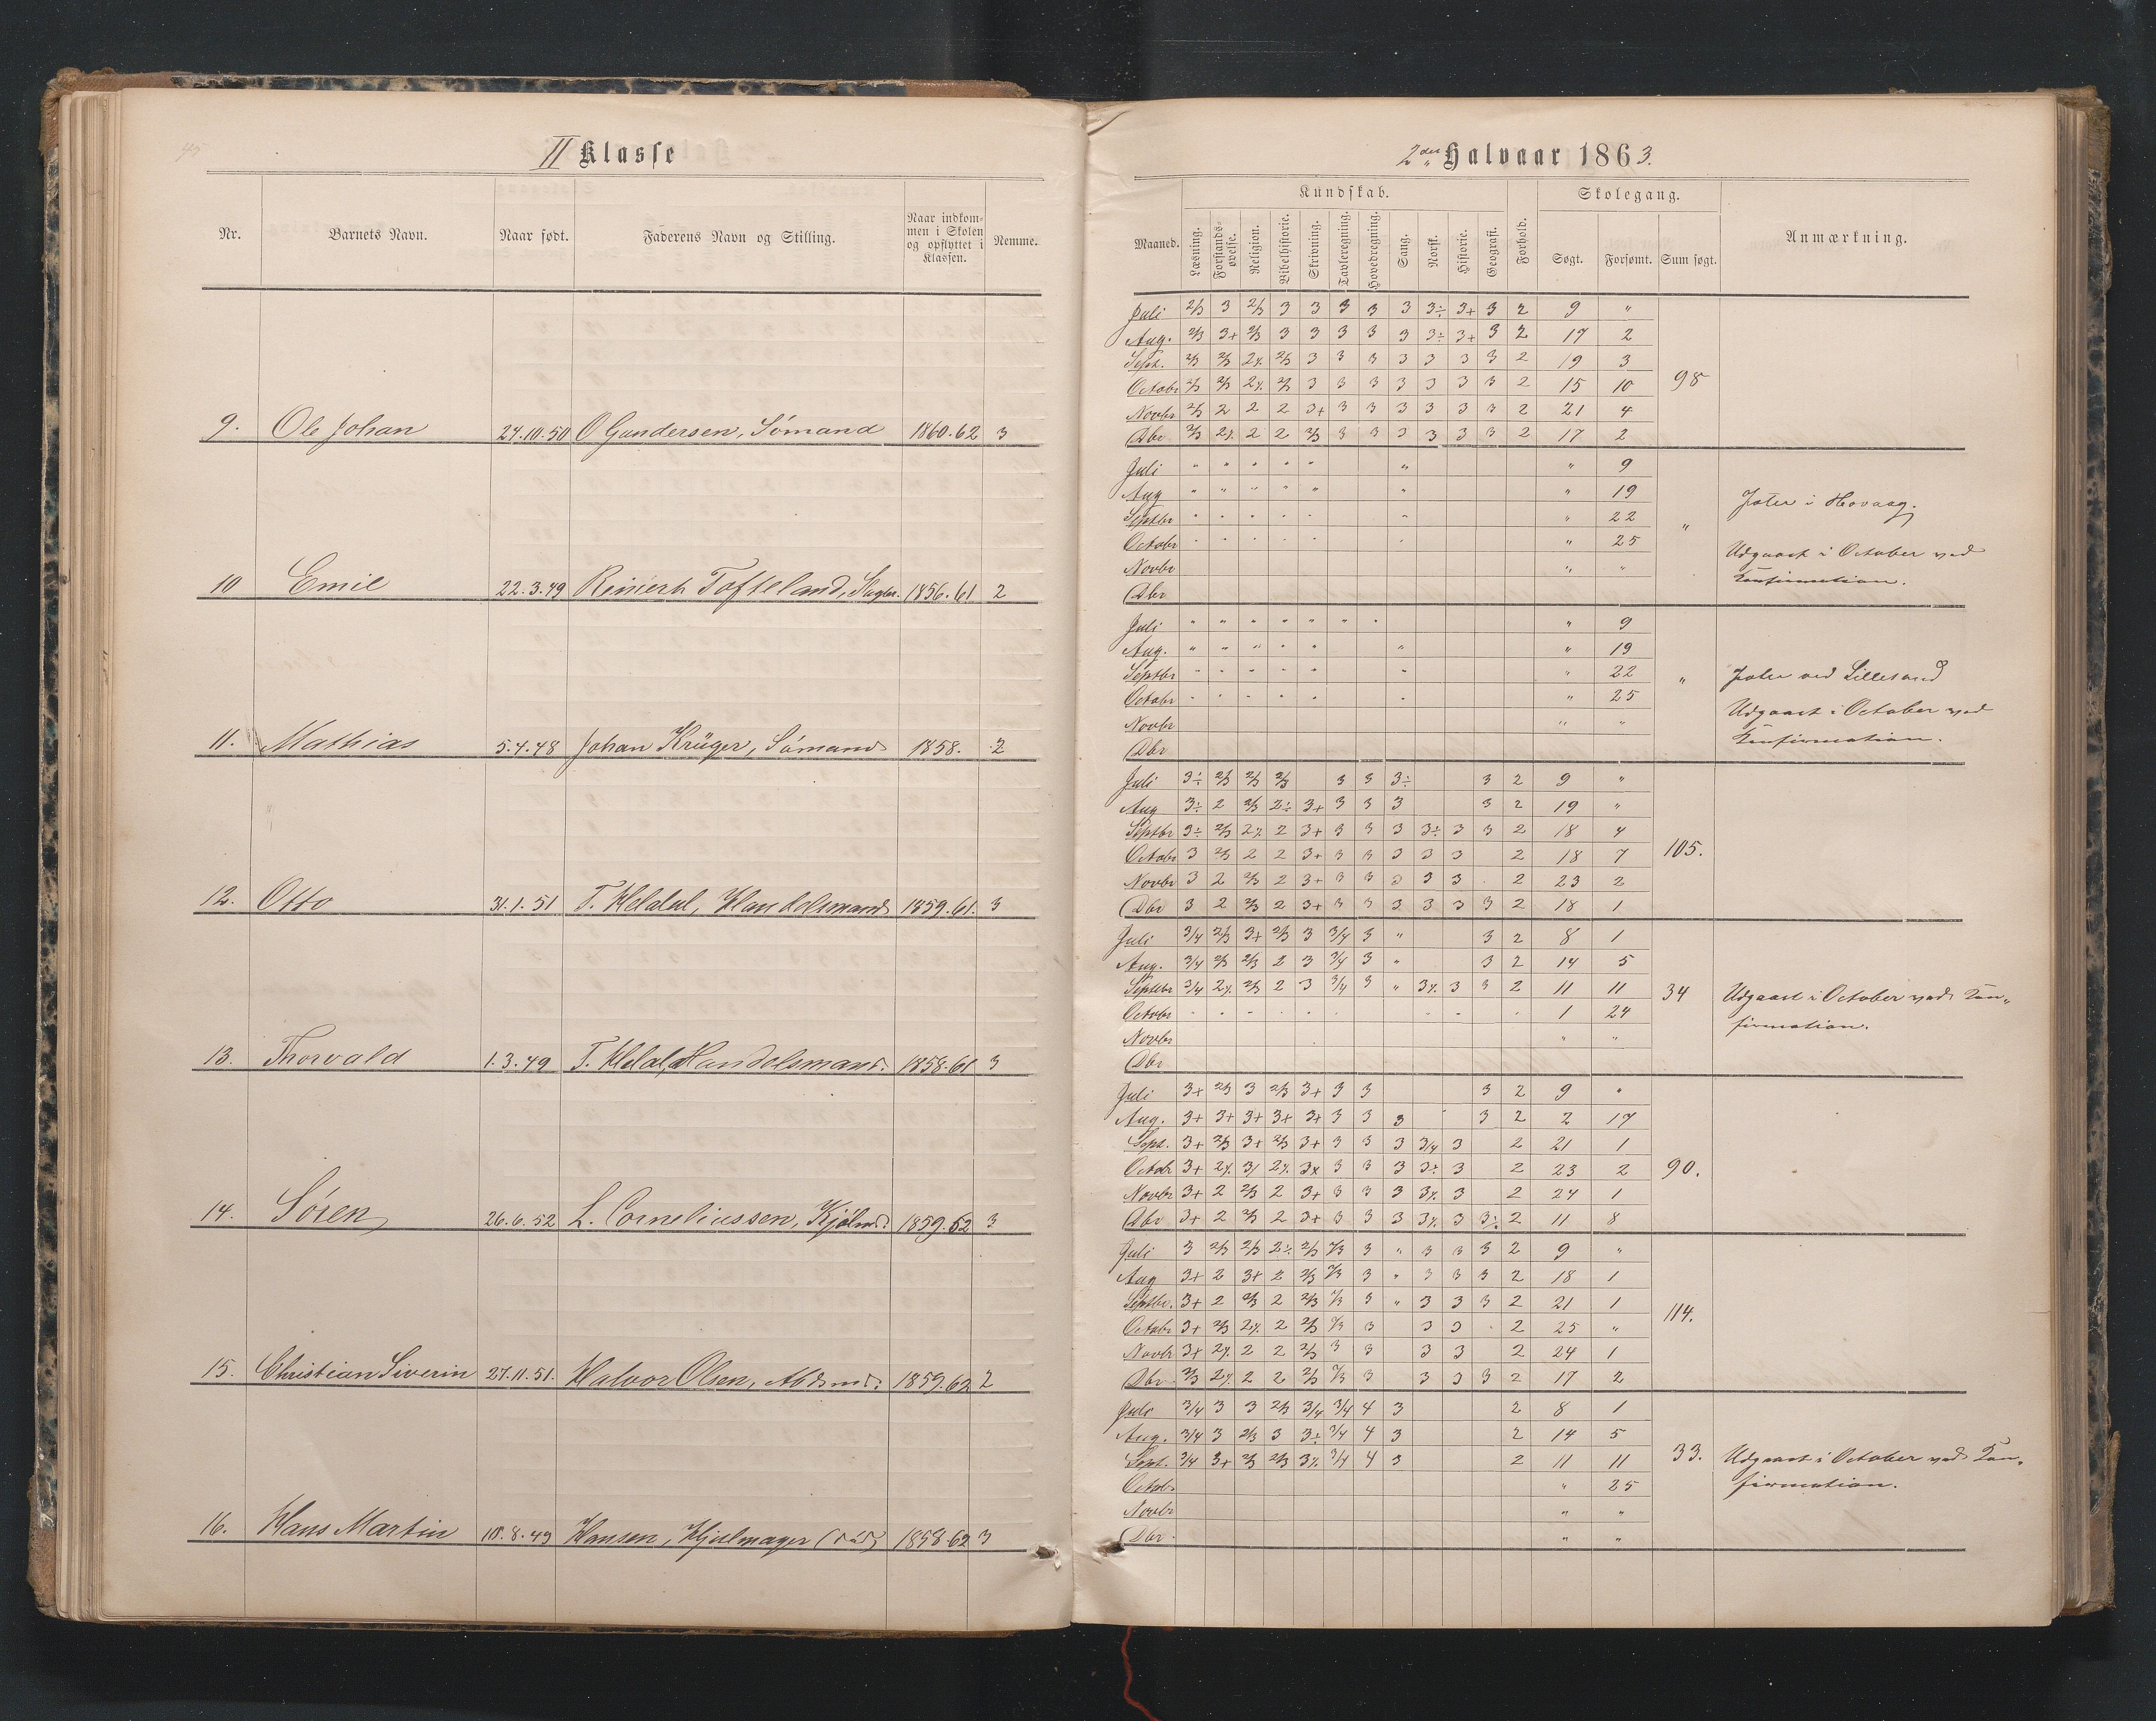 II Klasse
Nr. Barnets Navn. Naar født. Faderens Navn og Stilling. Naar indkommen i Skolen og opflyttet i Klassen. Nemme.
9. Ole Johan 24.10.50 O Gundersen, Sømand 1860.62 3
10 Emil 22.3.49 Reinert Tofteland, 1856.61 2
11. Mathias 5.4.48 Johan Krüger, Sømand 1858. 2
12. Otto 31.1.51 T. Heldal, Handelsmand 1859.61. 3
13. Thorvald 1.3.49 T. Heldal, Handelsmand. 1858.61 3
14. Søren 26.6.52 L. Corneliussen, 1859.62 3
15. Christian Siverin 27.11.51. Halvor Olsen, Arbdsmd. 1859.62 2
16. Hans Martin 10.8.49 Hansen, Hjulmager (død) 1858.62 3
2det Halvaar 1863.
Maaned. Kundskab. Forhold. Skolegang. Anmærkning.
Læsning. Forstandsøvelse. Religion. Bibelhistorie. Skrivning. Tavleregning. Hovedregning. Sang. Norsk. Historie. Geografi. Søgt. Forsømt. Sum søgt.
Juli 2/3 3 2/3 3 3 3 3 3 3÷ 3+ 3 2 9 "
Aug. 2/3 3+ 2/3 3 3 3 3 3 3÷ 3+ 3 2 17 2
Sept. 2/3 2/3 2% 2/3 3 3 3 3 3 3 3 2 19 3
Octobr 2/3 2/3 2% 2/3 3 3 3 3 3 3 3 2 15 10 98
Novbr 2/3 2 2 2 3+ 3 3 3 3 3 3 2 21 4
Dbr 2/3 2% 2 2 2/3 3 3 3 3 3 3 2 17 2
Juli " " " " " " " 9
Aug " " " " " " " 19
Septbr " " " " " " " 22 " i Hovaag.
Octobr " " " " " " " 25 Udgaaet i October ved
Novbr " " Konfirmation.
Dbr
Juli " " " " " " " " 9
Aug. " " " " " " " 19
Septbr " " " " " " " 22 " ved Lillesand
Octobr " " " " " " " 25 Udgaaet i October ved
Novbr " " Konfirmation.
Dbr
Juli 3÷ 2/3 2/3 2/3 3 3 3÷ 3 2 9 "
Aug 3÷ 2 2/3 2÷ 3+ 3 3 3 3 2 19 "
Septbr 3÷ 2/3 2% 2 3+ 3 3 3 3÷ 3 3 2 18 4
Octobr 3 2/3 2 2 3+ 3 3 3 3 3 2 18 7 105.
Novbr 3 2 2/3 2 3+ 3 3 3 3 3 2 23 2
Dbr 3 2 2/3 2 3+ 3 3 3 3 3 3 2 18 1
Juli 3/4 2/3 3+ 2/3 3 3/4 3 " 3 2 8 1
Aug. 3/4 2/3 2/3 2 3 3/4 3 " 3 2 14 5
Septbr 3/4 2% 2/3 2 3 3/4 3 " 3% 3 3 2 11 11 34 Udgaaet i October ved Kon-
Octobr 1 24 firmation.
Novbr " "
Dbr
Juli 3+ 2/3 3 2/3 3+ 3 3 3 2 9 "
Aug. 3+ 3+ 3+ 3+ 3+ 3 3 3 3 2 2 17
Sept. 3+ 2/3 3+ 2/3 3+ 3 3 3 3/4 3 2 21 1
Octobr 3+ 2% 3/ 2% 3+ 3 3 3 3÷ 3 2 23 2 90.
Novbr 3+ 2 2/3 2 3+ 3 3 3 3% 3 2 24 1
Dbr 3+ 2 2/3 2 3+ 3 3 3 3% 3 3÷ 2 11 8
Juli 3 2/3 2/3 2÷ 2/3 2/3 3 " 3 3 3 2 9 "
Aug 3+ 2 3+ 2 2/3 2/3 3 " 3 3 3 2 18 1
Septbr. 3+ 2 2/3 2 2/3 2/3 3 " 3 3 3 2 21 1 114.
Octobr 3+ 2/3 2% 2 2/3 2/3 3 3 3 2 25 "
Novbr 3+ 2% 2 2 2/3 3 3 3 3 2 24 1
Dbr 2/3 2% 2 2 2/3 2/3 3 3 3 3 2 17 2
Juli 3/4 3 3 2/3 3/4 3/4 4 3 2 8 1
Aug. 3/4 3 2/3 3 3÷ 3/4 4 3 2 14 5
Sept. 3/4 3+ 2/3 2/3 3% 3/4 4 3 2 11 11 33. Udgaaet i October ved Kon-
Octobr " 25 firmation.
Novbr " "
Dbr. " "